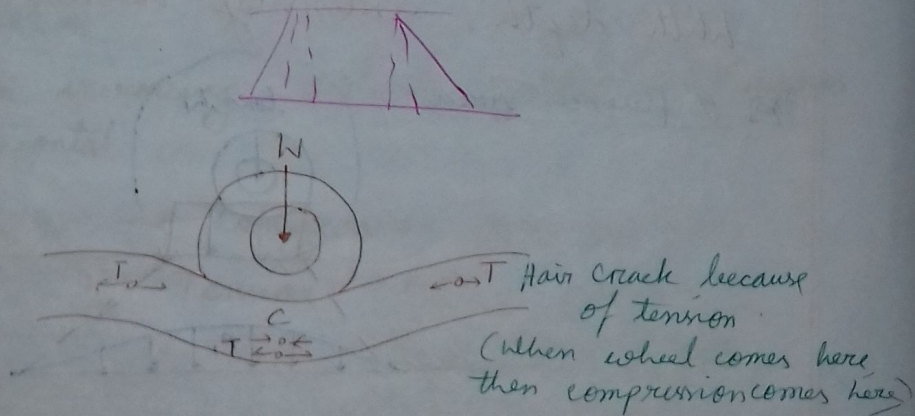 W
T
T Hair Crack because
of tension
C
T
(When wheel comes here
then compression comes here)